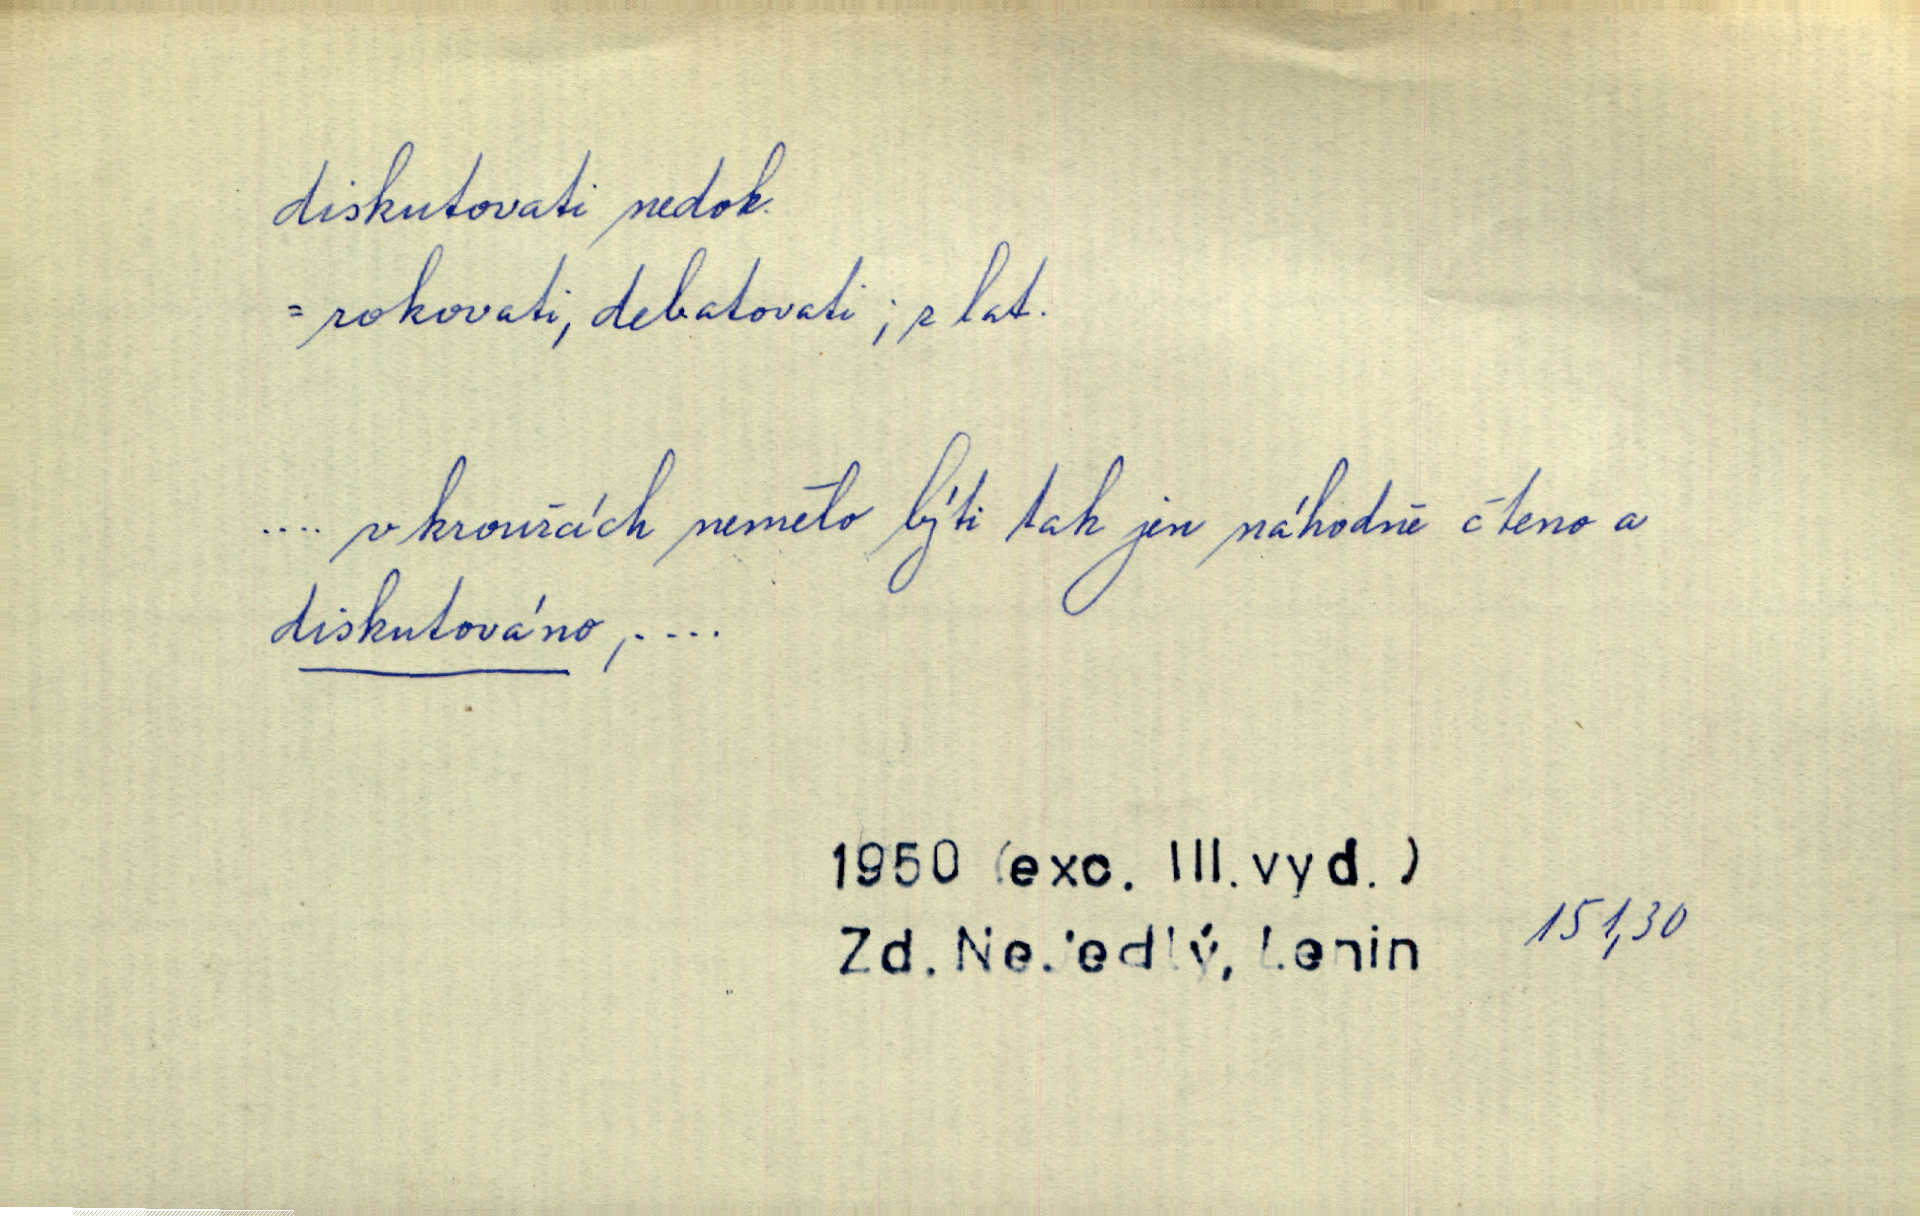 diskutovati nedok.
= rokovati, debatovati; z lat.
.... v kroužcích nemělo býti tak jen náhodně čteno a
diskutováno, ....
1950 (exc. III. vyd.)
Zd. Nejedlý, Lenin
151,30